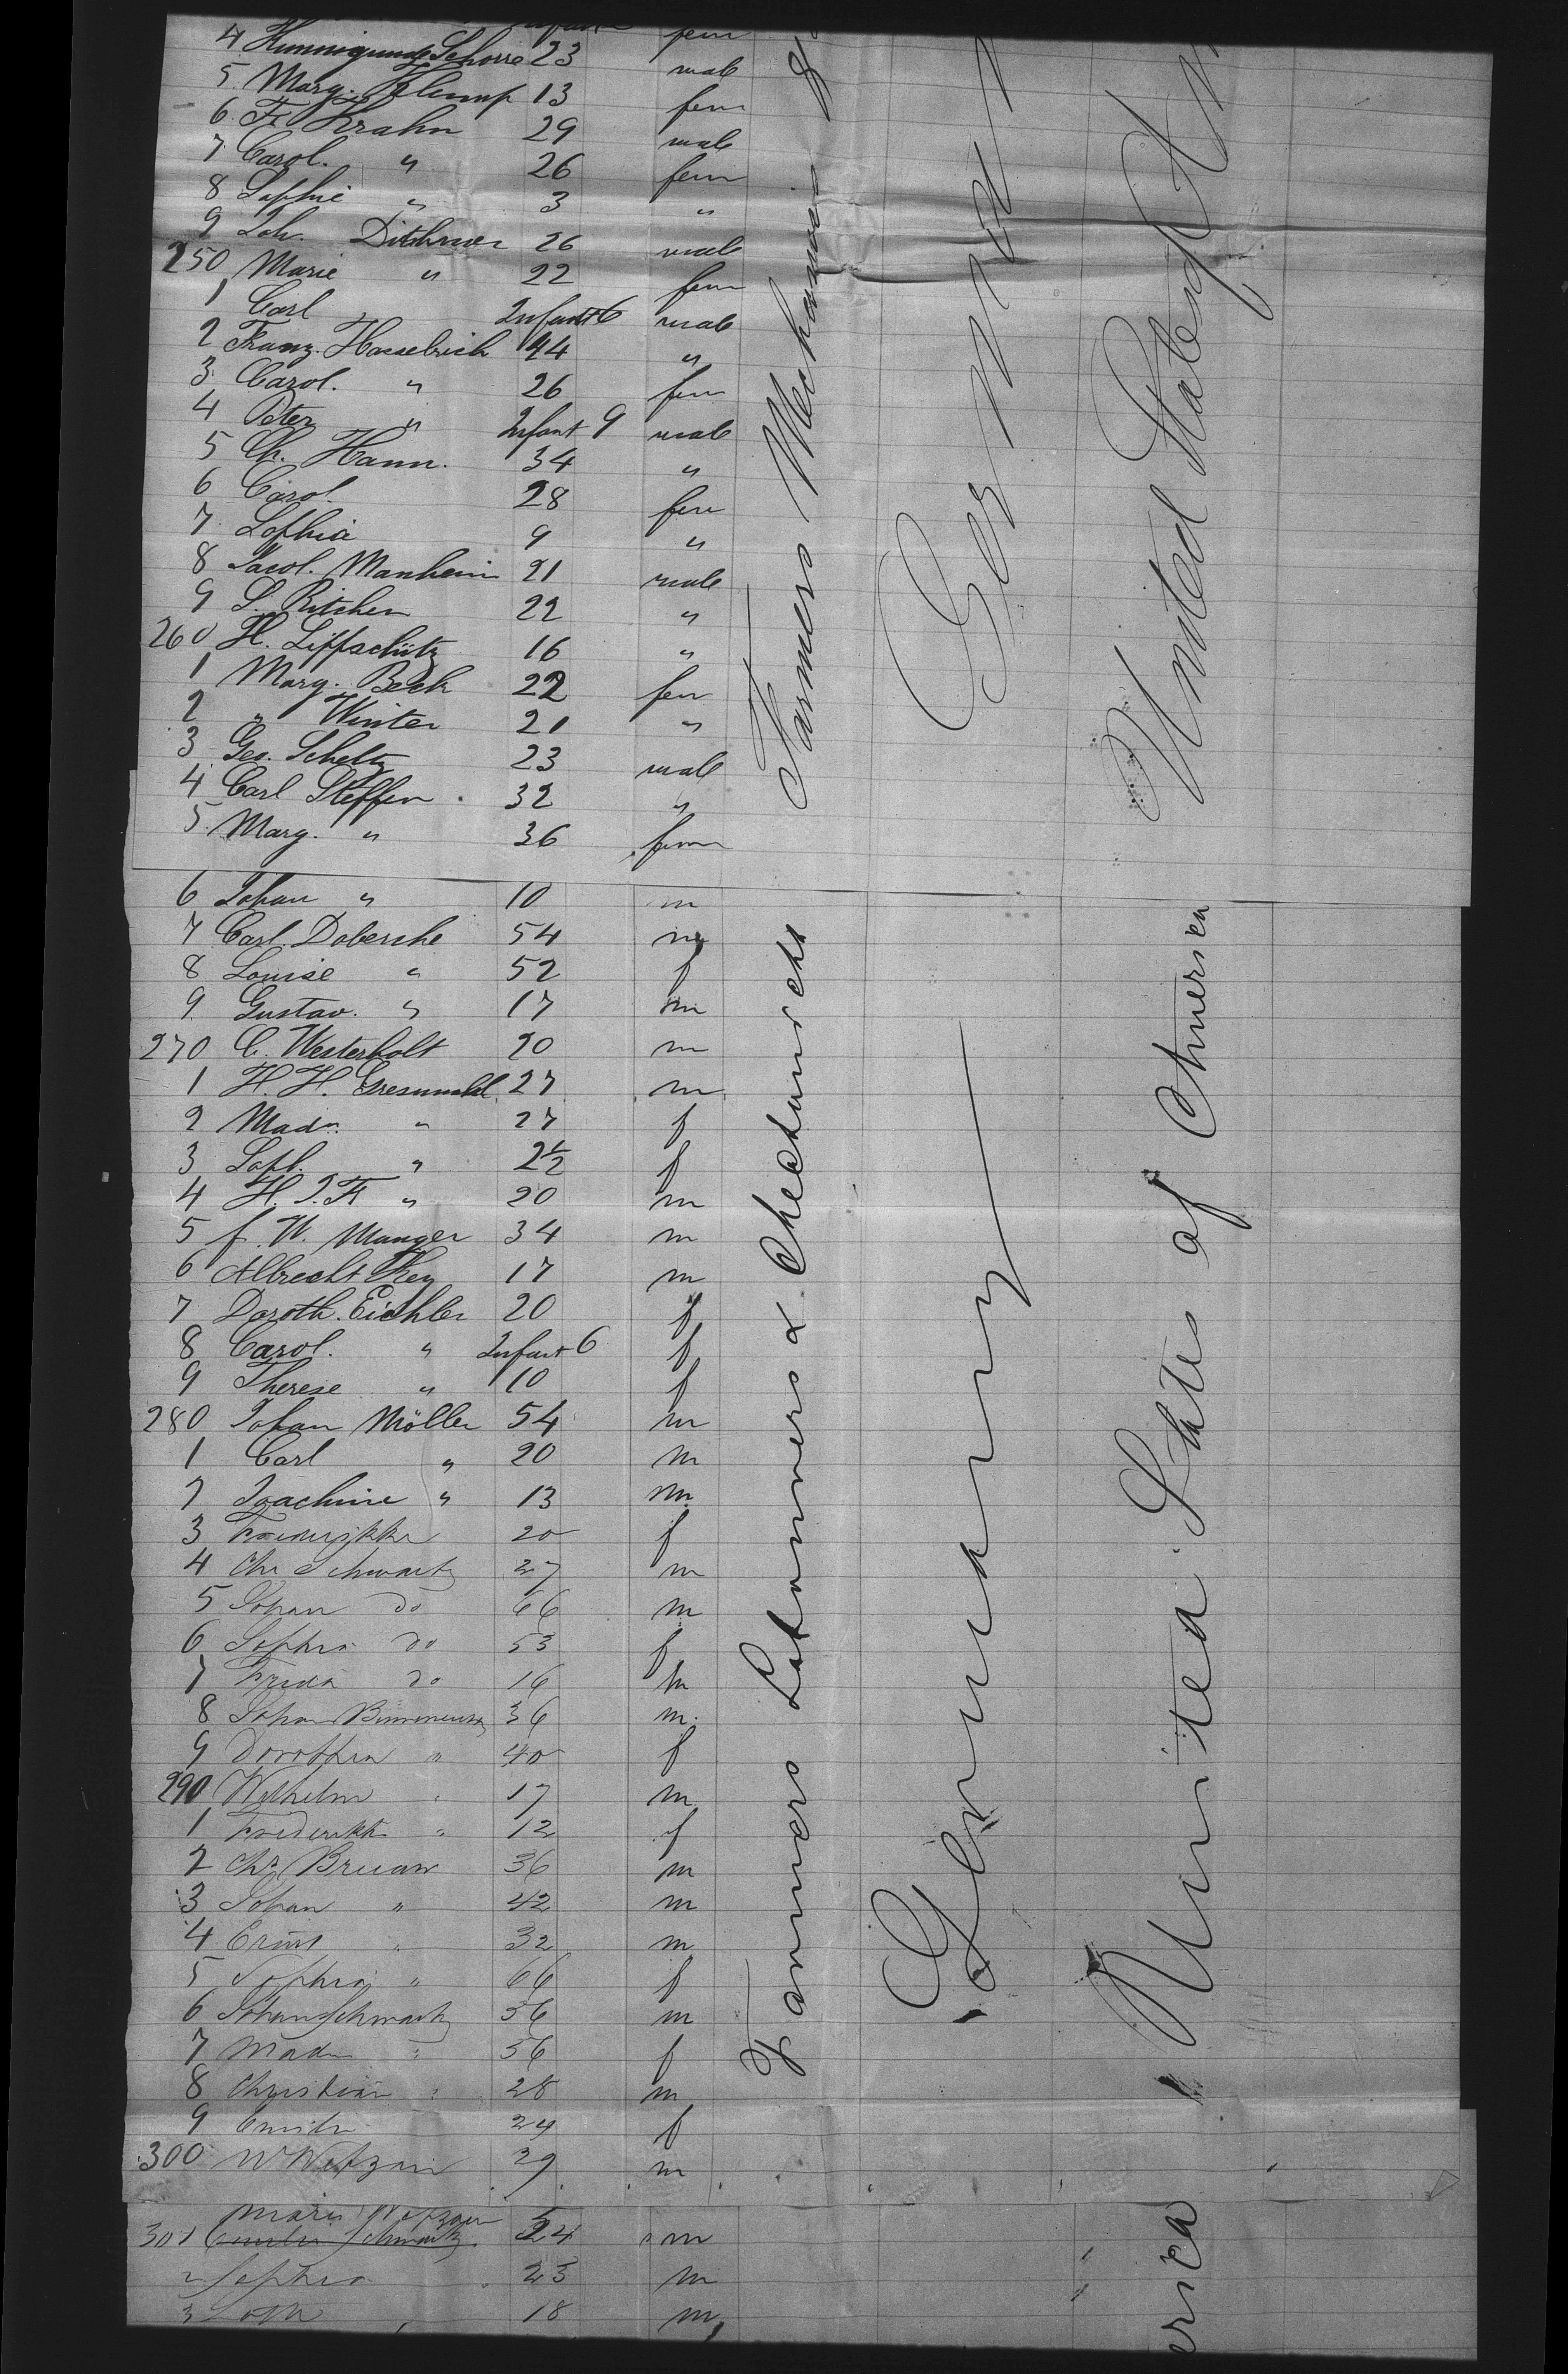 fem
4 Kunnigunde Schorre 23 male
5 Marg. Klemp 13 fem
6 Fr. Krahn 29 male
7 Carol. " 26 fem
8 Sophie " 3 "
9 Joh. Dithmer 26 male
250 Marie " 22 fem
1 Carl Infant 6 male
2 Franz. Hasselrich 44 "
3 Carol. " 26 fem
4 Peter " Infant 9 male
5 Ch. Hann. 34 "
6 Carol. 28 fem
7 Sophia 9 "
8 Jacol. Manheim 21 male
9 S. Ritcher 22 "
260 H. Liffschütz 16 "
1 Marg. Beck 22 fem
2 " Winter 21 "
3 Geo. Scheltz 23 male
4 Carl Steffen. 32 "
5 Marg. " 36 fem
6 Johan " 10 m
7 Carl. Dobersche 54 m
8 Louise " 52 f
9 Gustav. " 17 m
270 C. Westerholt 20 m
1 H. H. 27 m
2 Madn. " 27 f
3 Soph. " 2½ f
4 H. J. Fr " 20 m
5 f. W. Munger 34 m
6 Albrecht Key 17 m
7 Doroth. Eichler 20 f
8 Carol. " Infant 6 f
9 Therese " 10 f
280 Johan Möller 54 m
1 Carl " 20 m
2 Joachim " 13 m
3 20 f
4 Chr Schwartz 27 m
5 Johan do 66 m
6 Sophia do 53 f
7 Frida do 16 m
8 Johan 36 m.
9 Dorothea " 40 f
290 Wilhelm " 17 m
1 Frederikke " 12 f
2 Chr. Bruan 36 m
3 Johan " 42 m
4 Ernst " 32 m
5 Sophia " 66 f
6 Johan Schwartz 56 m
7 Madn " 56 f
8 Christian " 28 m
9 Emili 24 f
300 W Wetzan 29 m
Maria Wetzan
301 Emilie Schwartz 24 " m
2 Sophia 23 m
3 18 m
Farmers Mechanics &
Farmers Labourers &
Germany
Germany
United States of Am
United States of America
erica